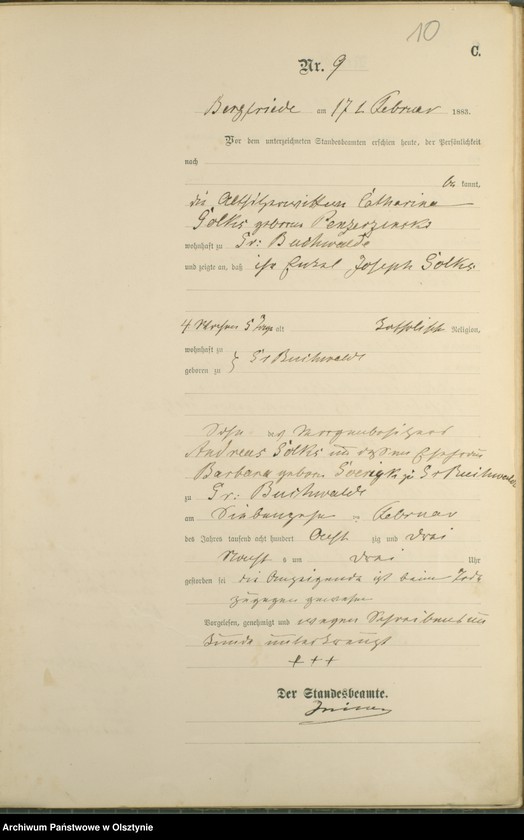 10
C.
Nr. 9
Bergfriede am 17 t Februar 1883.
Vor dem unterzeichneten Standesbeamten erschien heute, der Persönlichkeit
nach
be kannt,
die Altsitzerwittwe Catharina
geborene
wohnhaft zu Gr: Buchwalde
und zeigte an, daß ihr Enkel Joseph
4 Wochen 5 Tage alt katholisch Religion,
wohnhaft zu
geboren zu } Gr Buchwalde
Sohn des Morgenbesitzers
Andreas und dessen Ehefrau
Barbara geborne zu Gr Buchwalde
zu Gr: Buchwalde
am Siebenzehn Februar
des Jahres tausend acht hundert Acht zig und drei
Nacht s um drei Uhr
gestorben sei die Anzeigende ist beim Tode
zugegen gewesen
Vorgelesen, genehmigt und wegen Schreibensun
kunde unterkreuzt
+++
Der Standesbeamte.
Archiwum Państwowe w Olsztynie